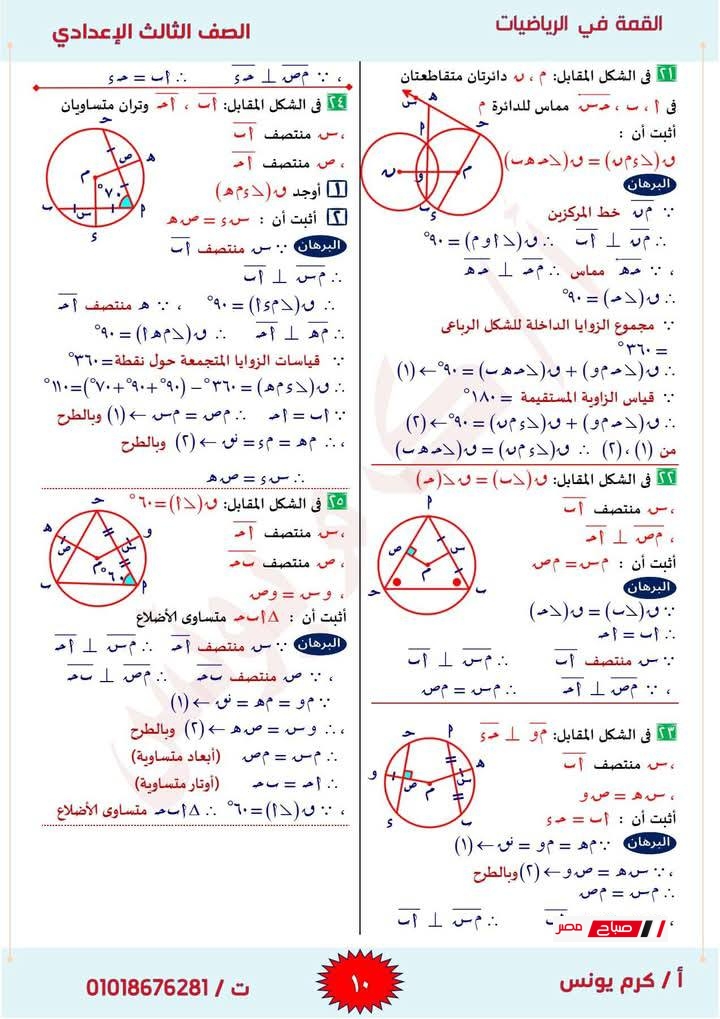 القمة في الرياضيات
الصف الثالث الإعدادي
٢١ فى الشكل المقابل: م ، ن دائرتان متقاطعتان
فى أ ، ب ، حس مماس للدائرة م
أثبت أن :
ق(∠ءم‍ن) = ق(∠حهب)
البرهان
∵ من خط المركزين
∴ من ⊥ أب ∴ ق(∠أوم) = ٩٠°
، ∵ حه مماس ∴ مح ⊥ حه
∴ ق(∠ح) = ٩٠°
∵ مجموع الزوايا الداخلة للشكل الرباعى
= ٣٦٠°
∴ ق(∠حمو) + ق(∠حهب) = ٩٠° ← (١)
∵ قياس الزاوية المستقيمة = ١٨٠°
∴ ق(∠حمو) + ق(∠ءمن) = ٩٠° ← (٢)
من (١) ، (٢) ∴ ق(∠ءمن) = ق(∠حهب)
٢٢ فى الشكل المقابل: ق(∠ب) = ق(∠ح)
، س منتصف أب
، مص ⊥ أح
أثبت أن : مس = مص
البرهان
∵ ق(∠ب) = ق(∠ح)
∴ أب = أح
∵ س منتصف أب ∴ مس ⊥ أب
، ∵ مص ⊥ أح ∴ مس = مص
٢٣ فى الشكل المقابل: مو ⊥ حء
، س منتصف أب
، سه = صو
أثبت أن : أب = حء
البرهان ∵ مه = مو = نق ← (١)
، ∵ سه = صو ← (٢) وبالطرح
∴ مس = مص
∴ مس ⊥ أب
، ∵ مص ⊥ حء ∴ أب = حء
٢٤ فى الشكل المقابل: أب ، أح وتران متساويان
، س منتصف أب
، ص منتصف أح
١ أوجد ق(∠ءمه)
٢ أثبت أن : سء = صه
البرهان ∵ س منتصف أب
∴ مس ⊥ أب
∴ ق(∠مءأ) = ٩٠° ، ∵ ه منتصف أح
∴ مه ⊥ أح ∴ ق(∠مهأ) = ٩٠°
∵ قياسات الزوايا المتجمعة حول نقطة = ٣٦٠°
∴ ق(∠ءمه) = ٣٦٠° − (٩٠° + ٩٠° + ٧٠°) = ١١٠°
∵ أب = أح ∴ مص = مس ← (١) وبالطرح
، ∴ مه = مء = نق ← (٢) وبالطرح
∴ سء = صه
٢٥ فى الشكل المقابل: ق(∠أ) = ٦٠°
، س منتصف أح
، ص منتصف بح
، وس = وص
أثبت أن : △أبح متساوى الأضلاع
البرهان ∵ س منتصف أح ∴ مس ⊥ أح
، ∵ ص منتصف بح ∴ مص ⊥ بح
∵ مو = مه = نق ← (١)
، ∵ وس = صه ← (٢) وبالطرح
∴ مس = مص (أبعاد متساوية)
∴ أح = بح (أوتار متساوية)
، ∵ ق(∠أ) = ٦٠° ∴ △أبح متساوى الأضلاع
صباح مصر
أ / كرم يونس
١٠
ت / 01018676281